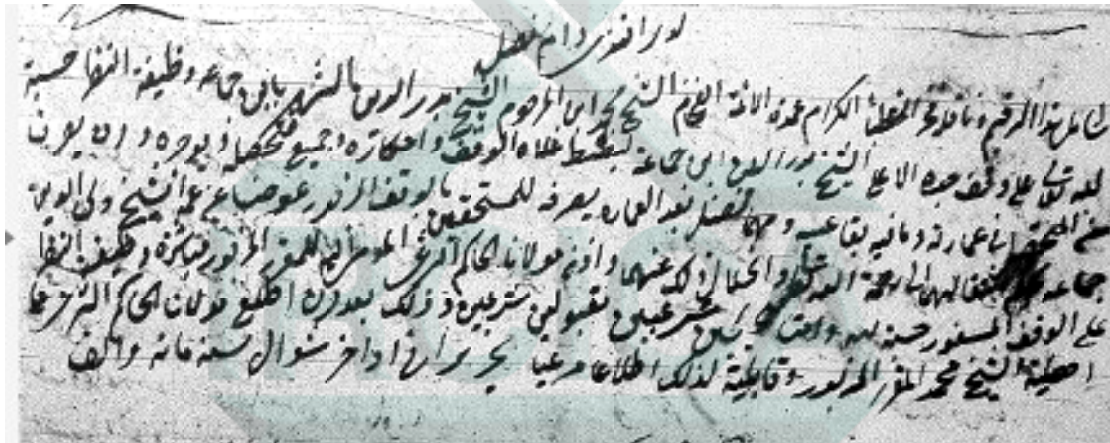 نور افندى دام فضله
لحامل هذا الرقيم وناقله فخر الخطباء الكرام عمدة الائمة الفخام الشيخ محمد ابن المرحوم الشيخ بدر الدين الشهير بابن جماعه وظيفة النظر حسبة
لله تعالى على وقف جده الاعلى الشيخ بدر الدين ابن جماعة ليضبط غلاة الوقف واحكاره وجميع متحصله ويوجره وان يصرف
من المتحصل في عمارته وما فيه بقا عينه ومهما تفضل بعد العماره يصرفه للمستحقين بالوقف المزبور عوضا عن عمه الشيخ ولي الدين
جماعه بحكم انتقاله الى رحمة الله تعالى وانحلال ذلك عنه واذن مولانا الحاكم الشرعي المومى اليه للمقرر المزبور مباشرة وظيفة النظر
على الوقف المسفور حسبة لله شرعيين مقبولين شرعيين وذلك بعد ان اطلع مولانا الحاكم الشرعي على
اهلية الشيخ محمد المقرر المزبور وقابلية لذلك اطلاعا مرعيا تحريرا في اواخر شوال سنة مائة والف